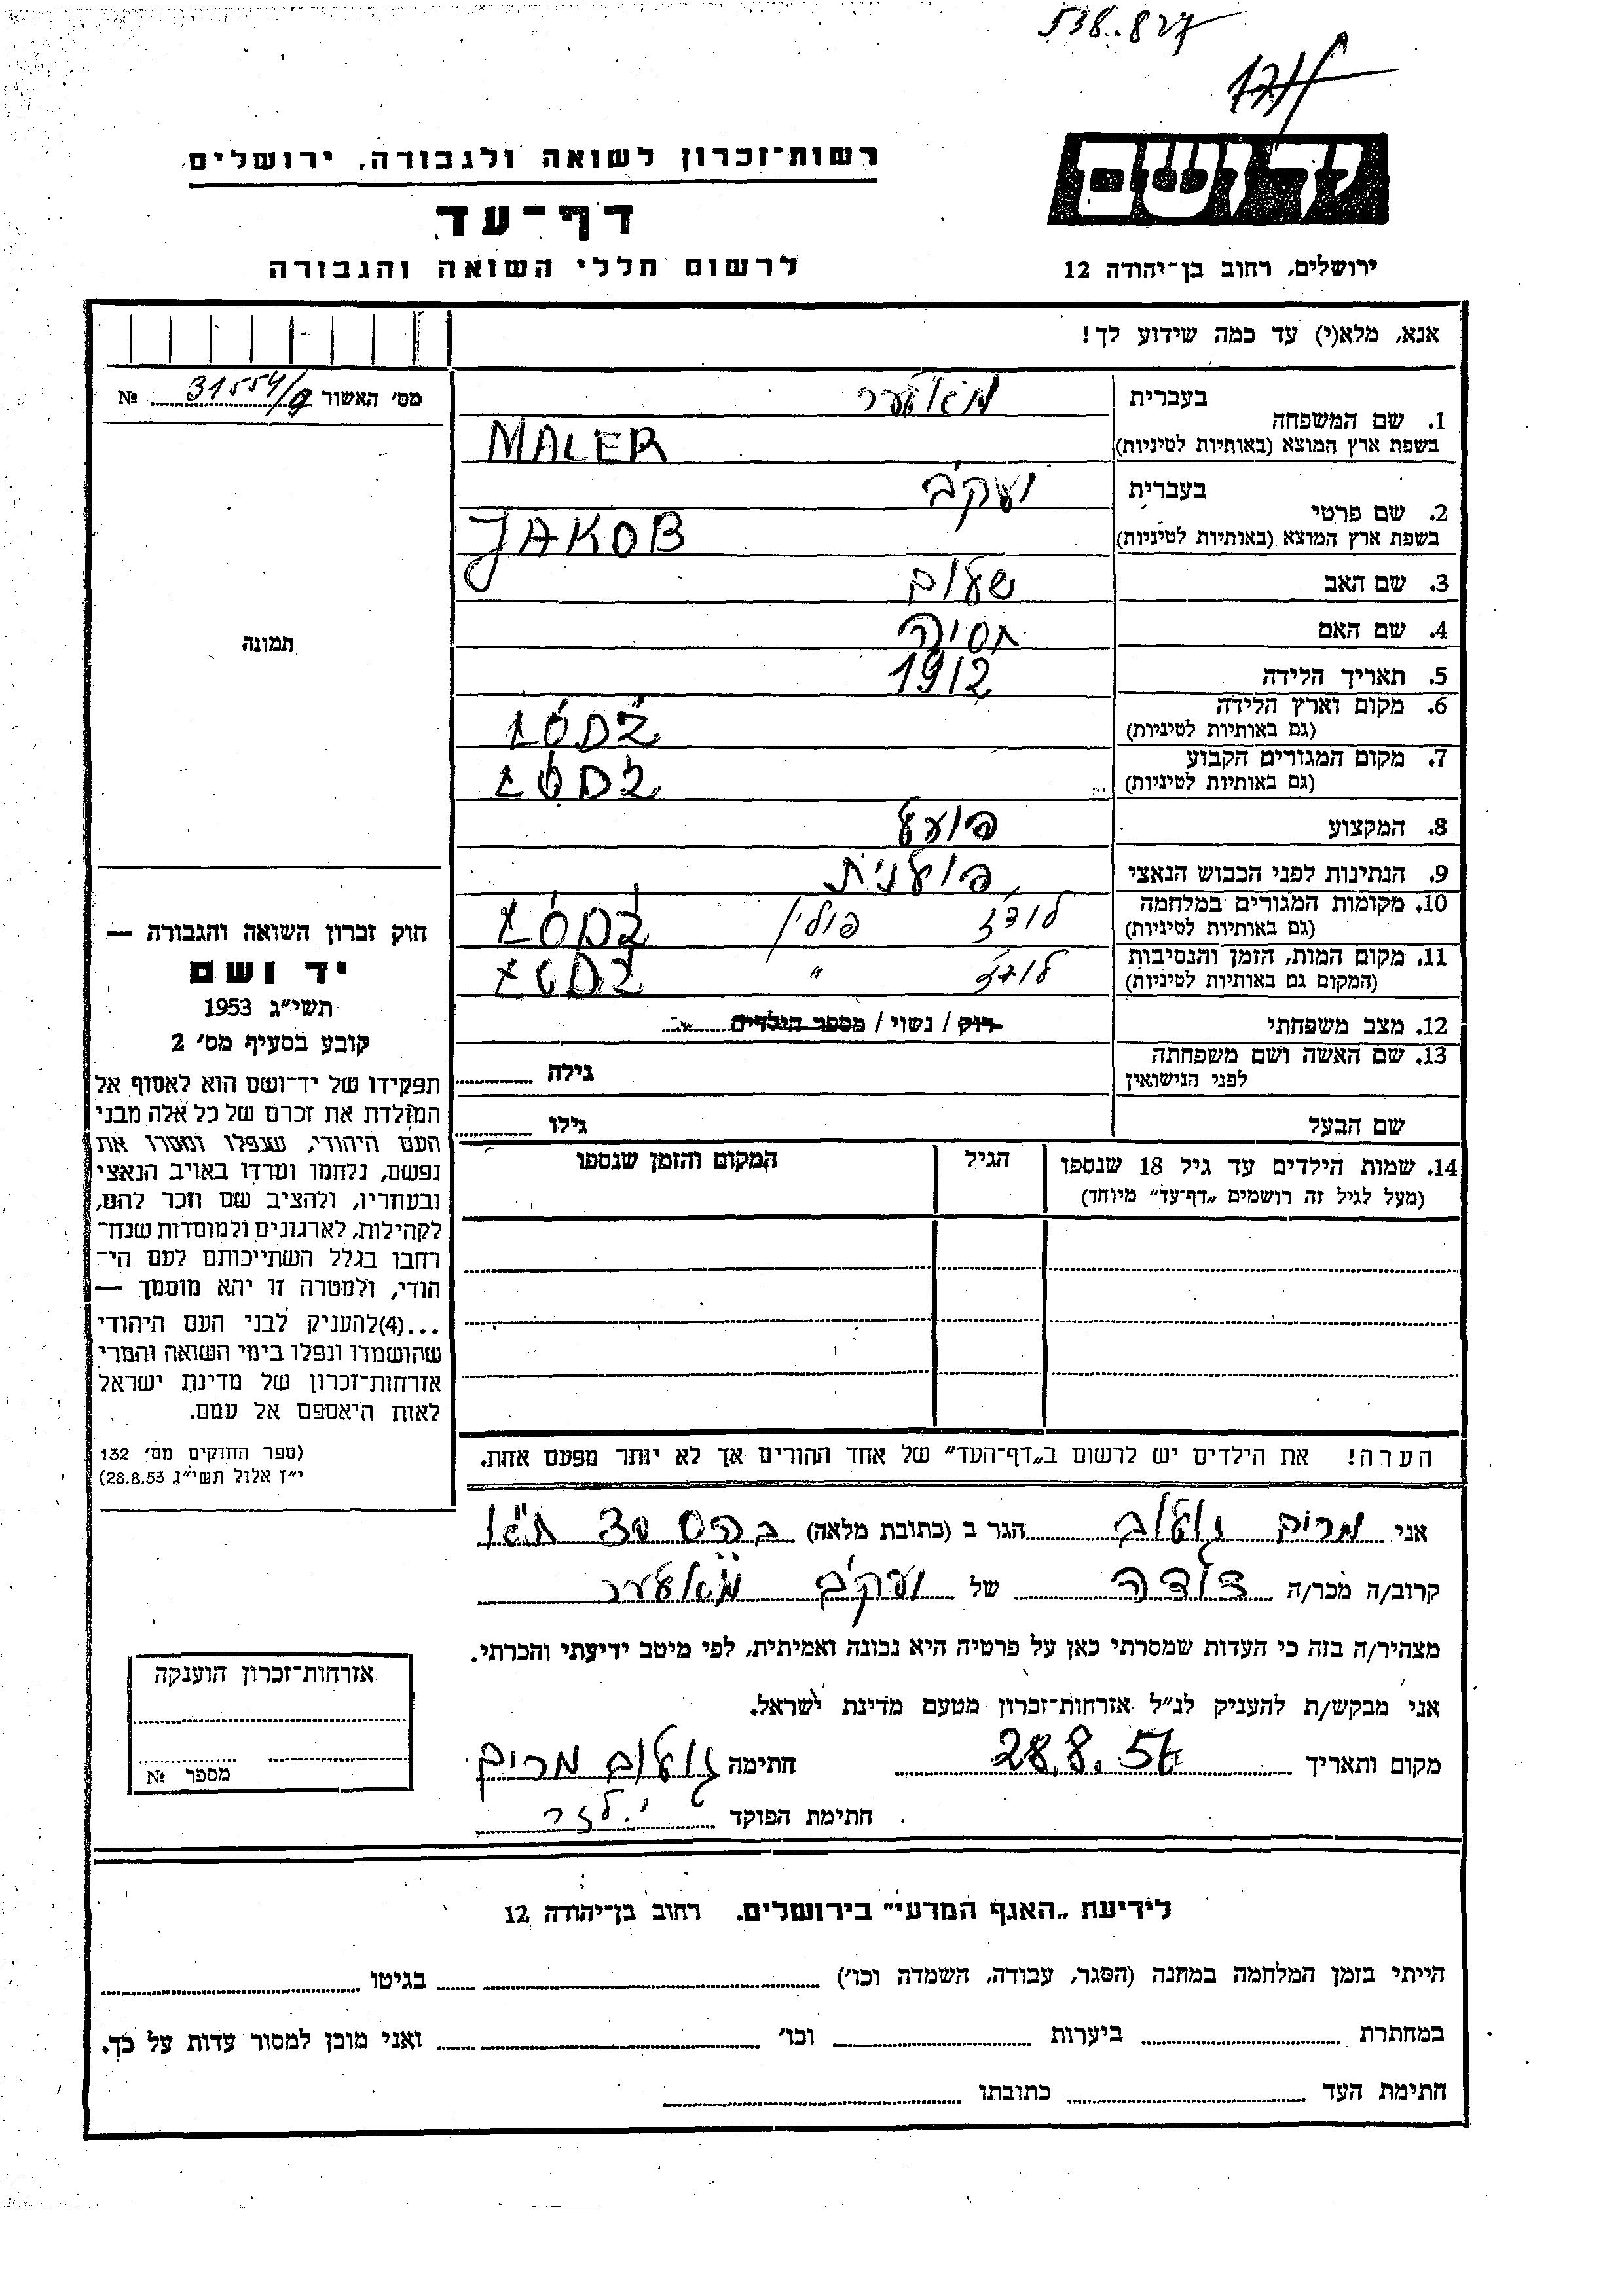 538..827
רשות־זכרון לשואה ולגבורה, ירושלים
דף־עד
לרשום חללי השואה והגבורה
יד ושם
ירושלים, רחוב בן־יהודה 12
אנא, מלא(י) עד כמה שידוע לך!
מס׳ האשור 31554/9 №
1. שם המשפחה
בעברית מאלער
בשפת ארץ המוצא (באותיות לטיניות) MALER
2. שם פרטי
בעברית יעקב
בשפת ארץ המוצא (באותיות לטיניות) JAKOB
3. שם האב שלום
4. שם האם חסיה
5. תאריך הלידה 1912
6. מקום וארץ הלידה
(גם באותיות לטיניות) ŁÓDŹ
7. מקום המגורים הקבוע
(גם באותיות לטיניות) ŁÓDŹ
8. המקצוע פועל
9. הנתינות לפני הכבוש הנאצי פולנית
10. מקומות המגורים במלחמה
(גם באותיות לטיניות) לודז׳ פולין ŁÓDŹ
11. מקום המות, הזמן והנסיבות
(המקום גם באותיות לטיניות) לודז׳ " ŁÓDŹ
12. מצב משפחתי רוק / נשוי / מספר הילדים
13. שם האשה ושם משפחתה
לפני הנישואין גילה
שם הבעל גילו
14. שמות הילדים עד גיל 18 שנספו
(מעל לגיל זה רושמים „דף־עד״ מיוחד)
הגיל
המקום והזמן שנספו
הערה! את הילדים יש לרשום ב„דף־העד״ של אחד ההורים אך לא יותר מפעם אחת.
תמונה
חוק זכרון השואה והגבורה —
יד ושם
תשי״ג 1953
קובע בסעיף מס׳ 2
תפקידו של יד־ושם הוא לאסוף אל
המולדת את זכרם של כל אלה מבני
העם היהודי, שנפלו ומסרו את
נפשם, נלחמו ומרדו באויב הנאצי
ובעוזריו, ולהציב שם וזכר להם,
לקהילות, לארגונים ולמוסדות שנח־
רבו בגלל השתייכותם לעם הי־
הודי, ולמטרה זו יהא מוסמך —
...(4)להעניק לבני העם היהודי
שהושמדו ונפלו בימי השואה והמרי
אזרחות־זכרון של מדינת ישראל
לאות היאספם אל עמם.
(ספר החוקים מס׳ 132
י״ז אלול תשי״ג 28.8.53)
אני מרים גוטלוב הגר ב (כתובת מלאה)
קרוב/ה מכר/ה דודה של יעקב מאלער
מצהיר/ה בזה כי העדות שמסרתי כאן על פרטיה היא נכונה ואמיתית, לפי מיטב ידיעתי והכרתי.
אני מבקש/ת להעניק לנ״ל אזרחות־זכרון מטעם מדינת ישראל.
מקום ותאריך 28.8.56 חתימה מרים
חתימת הפוקד
אזרחות־זכרון הוענקה
מספר №
לידיעת „האגף המדעי״ בירושלים. רחוב בן־יהודה 12
הייתי בזמן המלחמה במחנה (הסגר, עבודה, השמדה וכו׳) בגיטו
במחתרת ביערות וכו׳ ואני מוכן למסור עדות על כך.
חתימת העד כתובתו